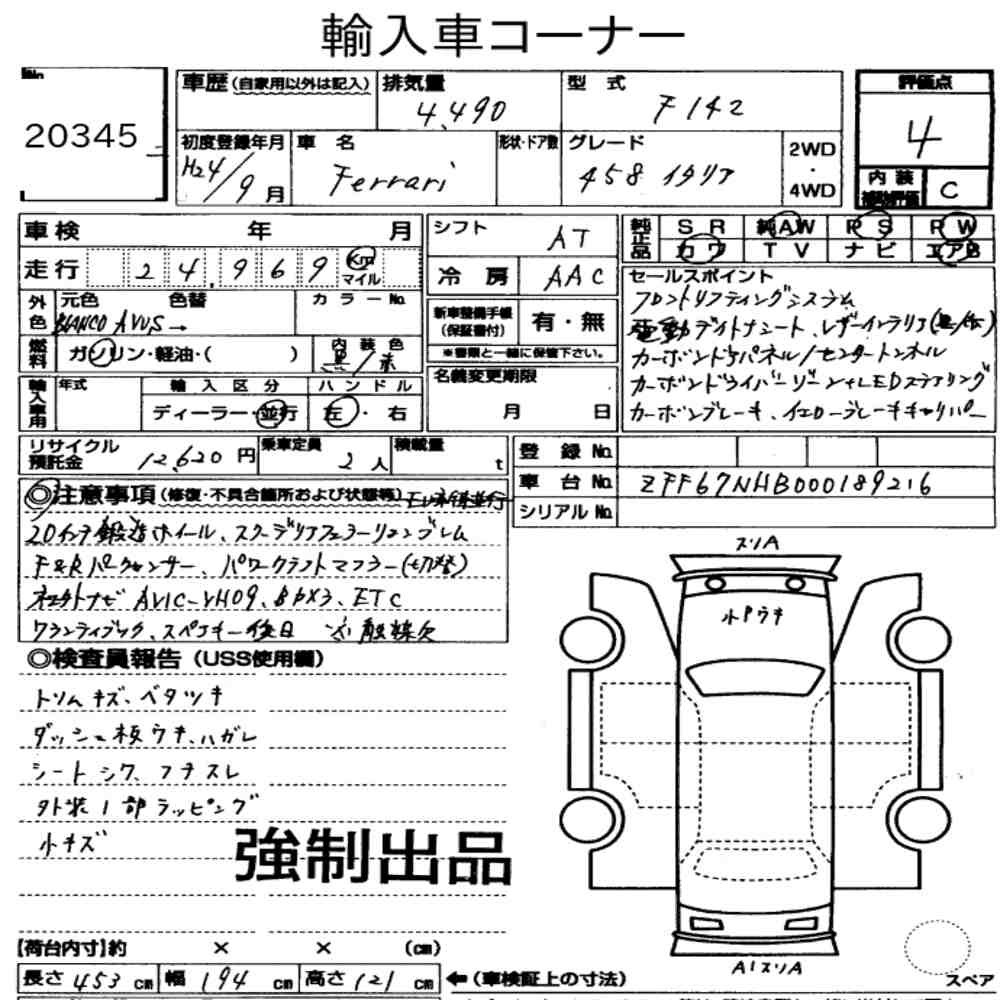 輸入車コーナー
No
20345
車歴(自家用以外は記入) 排気量 型式 評価点
4,490 F142 4
初度登録年月 車名 形状・ドア数 グレード 2WD・4WD
H24/9月 Ferrari 458 イタリア
内装補助評価 C
車検 年 月 シフト AT
純正品 SR 純AW PS PW
カワ TV ナビ エアB
走行 24,969 Km マイル 冷房 AAC
外色 元色 色替 カラーNo.
BIANCO AVUS →
新車整備手帳(保証書付) 有・無
※書類と一緒に保管下さい。
燃料 ガソリン・軽油・( ) 内装色 黒/赤
セールスポイント
フロントリフティングシステム
電動デイトナシート、レザーインテリア
カーボンドアパネル/センタートンネル
カーボンドライバーゾーン+LEDステアリング
カーボンブレーキ、イエローブレーキキャリパー
輸入車用 年式 輸入区分 ハンドル
ディーラー・並行 左・右
名義変更期限 月 日
リサイクル預託金 12,620円 乗車定員 2人 積載量 t
登録No.
車台No. ZFF67NHB000189216
シリアルNo.
◎注意事項(修復・不具合箇所および状態等)
20インチ鍛造ホイール、スクーデリアフェラーリエンブレム
F&Rパークセンサー、パワークラフトマフラー(切替)
ネクトナビ AVIC-VH09、 ETC
ワランティブック、スペアキー後日
◎検査員報告(USS使用欄)
トリムキズ、ベタツキ
ダッシュ板ウキ、ハガレ
シートシワ、フチスレ
外装1部ラッピング
小キズ
強制出品
スリA
小Pウキ
A1スリA
スペア
【荷台内寸】約 × × (cm)
長さ 453 cm 幅 194 cm 高さ 121 cm ←(車検証上の寸法)